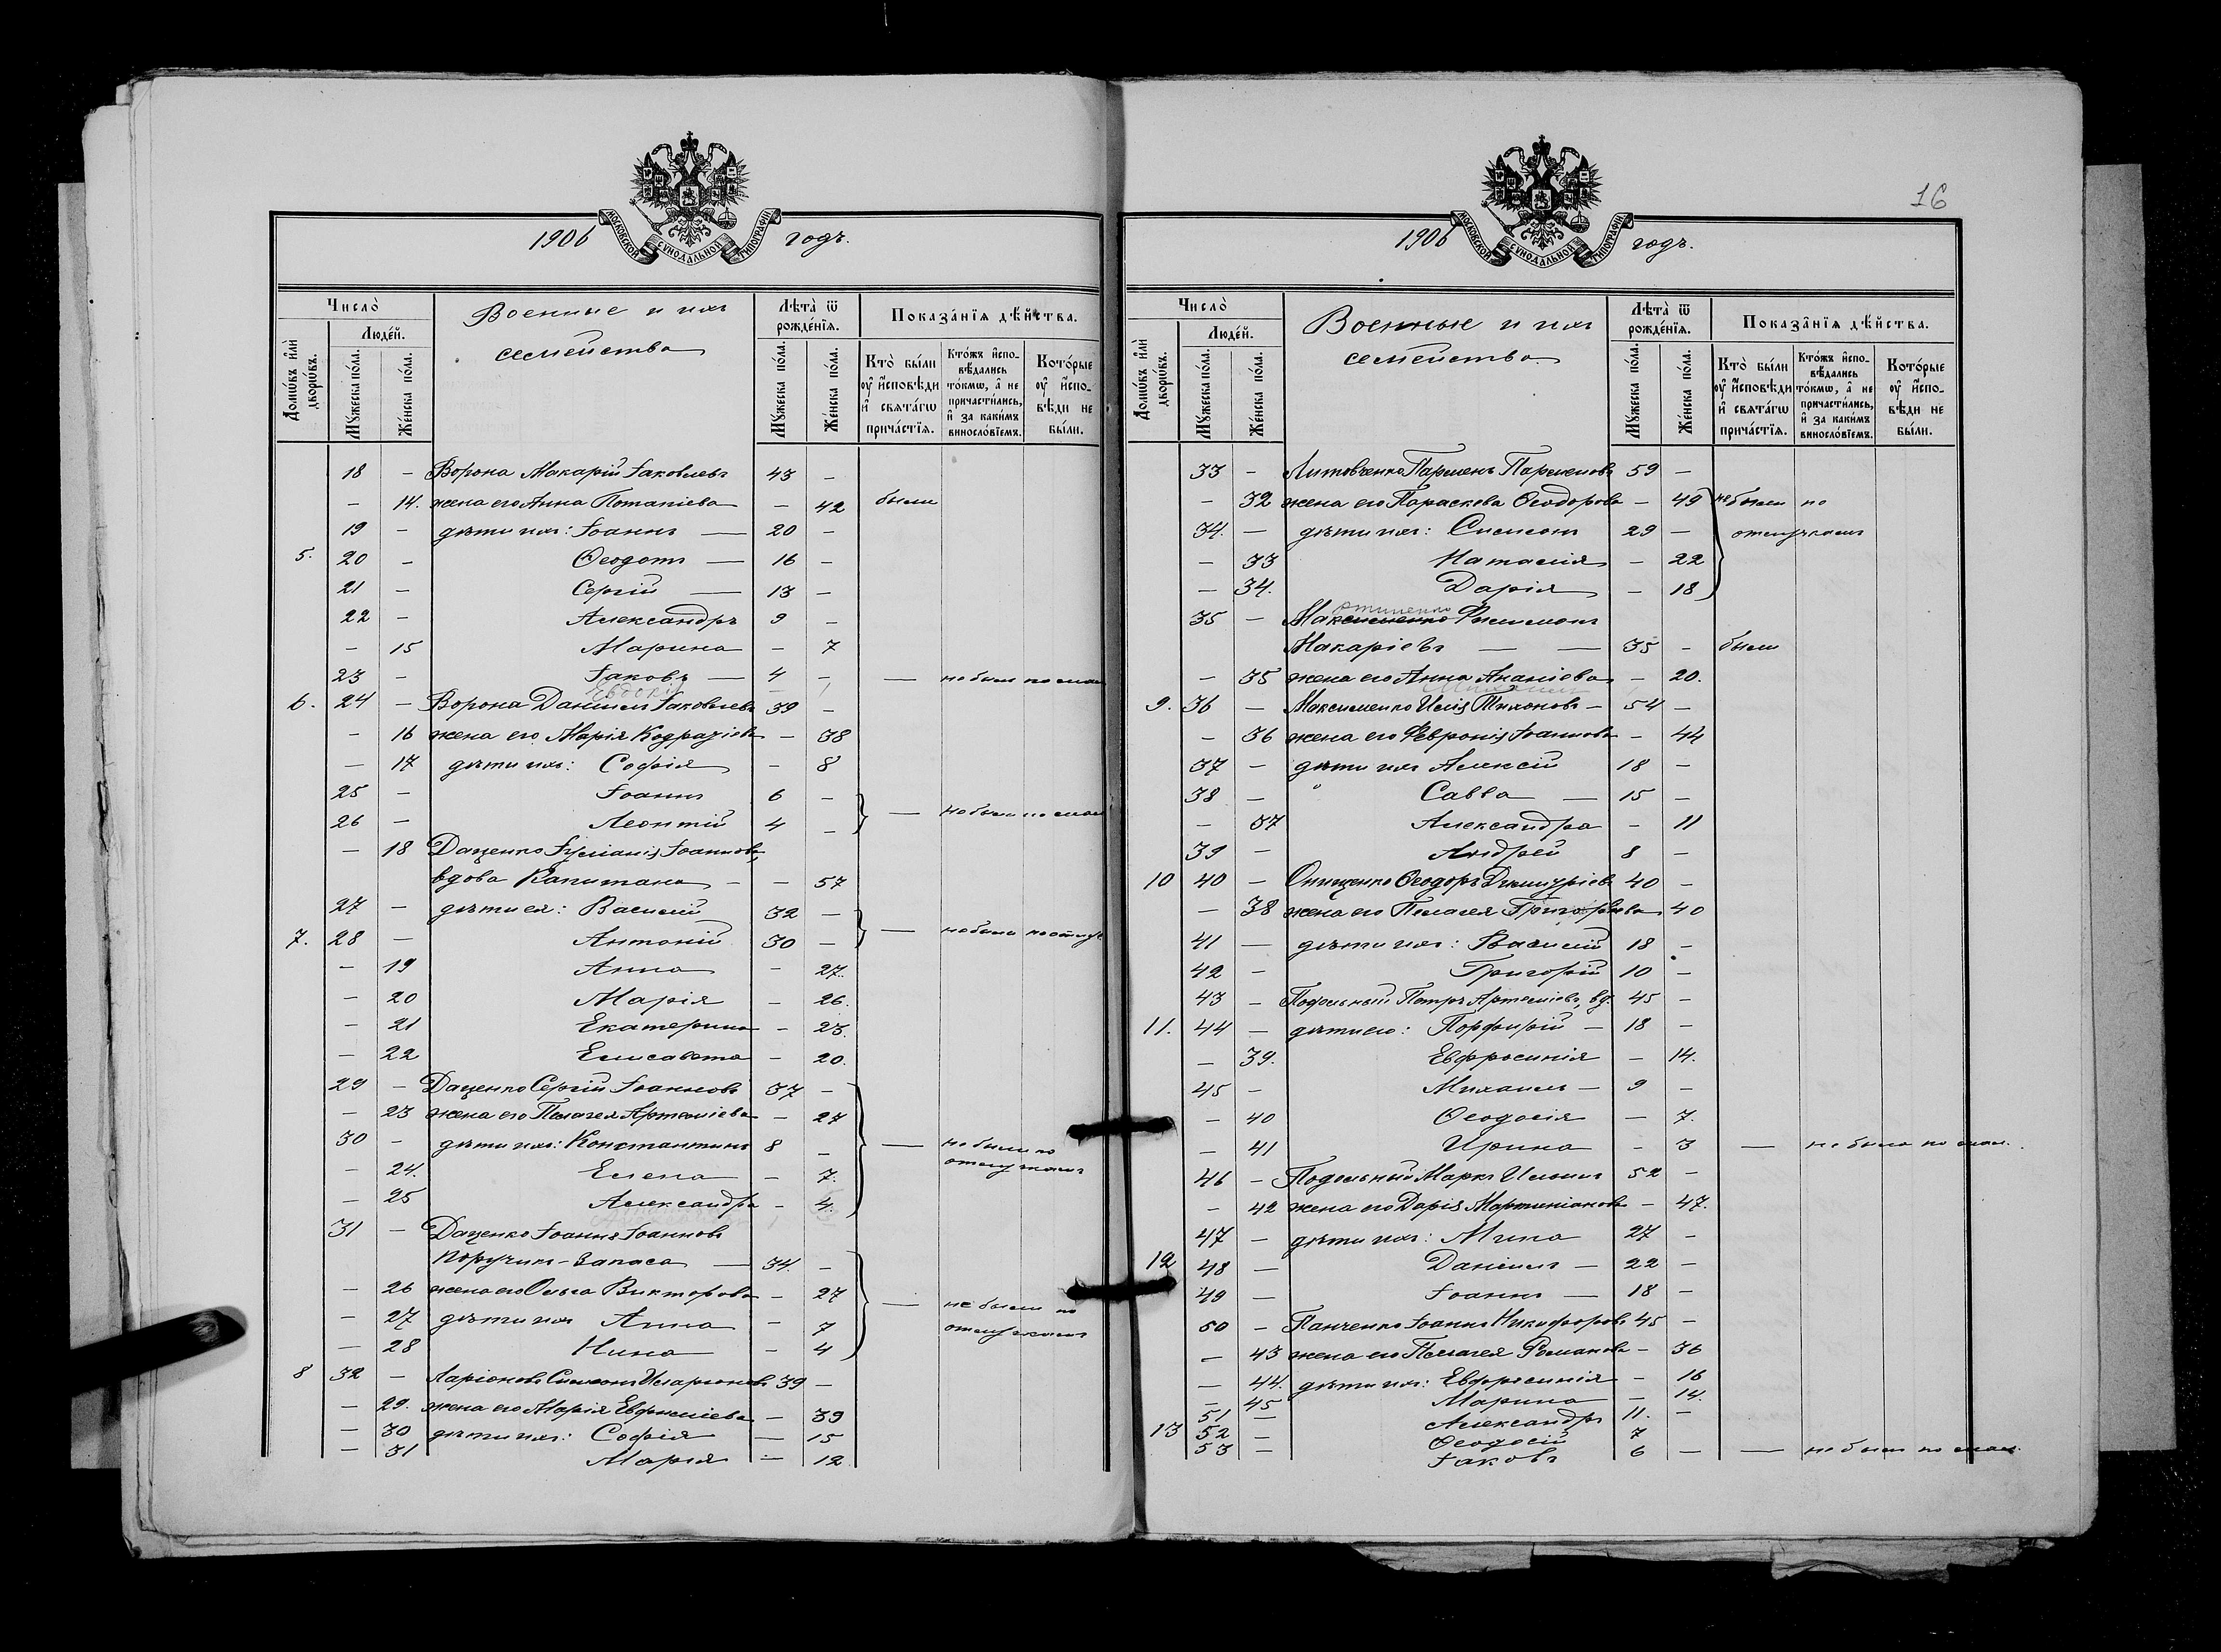 МОСКОВСКОЙ СѴНОДАЛЬНОЙ ТИПОГРАФІИ
1906 годъ.
Число̀
Домѡ́въ и҆лѝ дворѡ́въ.
Люде́й.
Мꙋ́жеска по́ла.
Же́нска по́ла.
Военные и ихъ
семейства
Лѣта̀ ѿ рожде́нїѧ.
Мꙋ́жеска по́ла.
Же́нска по́ла.
Показа́нїѧ дѣ́йства.
Кто̀ бы́ли ᲂу҆ и҆́сповѣди и҆ свѧта́гѡ прича́стїѧ.
Кто́жъ и҆спо-вѣ́дались то́кмѡ, а҆ не причасти́лись, и҆ за каки́мъ виносло́вїемъ.
Кото́рые ᲂу҆ и҆́спо-вѣди не бы́ли.
18 - Ворона Макарій Іаковлевъ 43 -
- 14. жена его Анна Потапіева - 42 были
19 - дѣти ихъ: Іоаннъ — 20 -
5. 20 - Ѳеодотъ — 16 -
21 - Сергій — 13 -
22 - Александръ 9 -
- 15 Марина - 7
23 - Іаковъ — 4 - — не былъ по мал
Евдокія - 1
6. 24 - Ворона Даніилъ Іаковлевъ 39 -
- 16 жена его Марія Кодратіева - 38
- 17 дѣти ихъ: Софія - 8
25 - Іоаннъ 6 -
26 - Леонтій 4 - — не были по мал
- 18 Даценко Іуліанія Іоаннова,
вдова Капитана - - 57
27 - дѣти ея: Василій 32 -
7. 28 - Антоній 30 - — не были по отлуч
- 19 Анна - 27.
- 20 Марія - 26.
- 21 Екатерина - 23.
- 22 Елисавета - 20.
29 - Даценко Сергій Іоанновъ 37 -
- 23 жена его Пелагея Артеміева - 27
30 - дѣти ихъ: Константинъ 8 - — не были по
- 24. Елена - 7. отлучкамъ
- 25 Александра - 4.
31 - Даценко Іоаннъ Іоанновъ
Поручик-запаса — 34. -
- 26 жена его Ольга Викторова - 27
- 27 дѣти ихъ Анна - 7 — не были по
- 28 Нина - 4 отлучкамъ
8 32 - Ларіоновъ Симеонъ Иларіоновъ 39 -
- 29. жена его Марія Евфиміева - 39
- 30 дѣти ихъ: Софія — 15
- 31 Марія — 12
16
МОСКОВСКОЙ СѴНОДАЛЬНОЙ ТИПОГРАФІИ
1906 годъ.
Число̀
Домѡ́въ и҆лѝ дворѡ́въ.
Люде́й.
Мꙋ́жеска по́ла.
Же́нска по́ла.
Военные и ихъ
семейства
Лѣта̀ ѿ рожде́нїѧ.
Мꙋ́жеска по́ла.
Же́нска по́ла.
Показа́нїѧ дѣ́йства.
Кто̀ бы́ли ᲂу҆ и҆́сповѣди и҆ свѧта́гѡ прича́стїѧ.
Кто́жъ и҆спо-вѣ́дались то́кмѡ, а҆ не причасти́лись, и҆ за каки́мъ виносло́вїемъ.
Кото́рые ᲂу҆ и҆́спо-вѣди не бы́ли.
33 - Литовченко Парменъ Парменовъ 59 -
- 32 жена его Параскева Ѳеодорова - 49 не были по
34. - дѣти ихъ: Симеонъ 29 - отлучкамъ
- 33 Наталія - 22
- 34. Дарія - 18
ртиненко
35 - Максименко Филимонъ
Макаріевъ — — 35 - были
- 35 жена его Анна Ананіева - 20.
9. 36 - Максименко Илія Тихоновъ - 54 -
- 36 жена его Февронія Іоаннова - 44
37 - дѣти ихъ Алексій 18 -
38 - " Савва — 15 -
- 37 Александра - 11
39 - Андрей 8 -
10 40 - Онищенко Ѳеодоръ Димитріев 40 -
- 38 жена его Пелагея Григорьева 40
41 — дѣти ихъ: Василій 18 -
42 - Григорій 10 -
43 - Подольный Петръ Артеміевъ, вд. 45 -
11. 44 - дѣти его: Порфирій - 18 -
- 39. Евфросинія - 14.
45 - Михаилъ - 9 -
- 40 Ѳеодосія - 7.
- 41 Ирина - 3 — не была по мал.
46 - Подольный Маркъ Ильинъ 52 -
- 42 жена его Дарія Мартиніанова - 47.
47 - дѣти ихъ: Мина 27 -
12 48 - Даніилъ - 22 -
49 - Іоаннъ — 18 -
50 - Панченко Іоаннъ Никифоровъ 45 -
- 43 жена его Пелагея Романова - 36
- 44. дѣти ихъ: Евфросинія - 16
- 45 Марина - 14.
51 - Александръ 11. -
13 52 - Ѳеодосій 7
53 - Іаковъ 6 - — не были по мал.